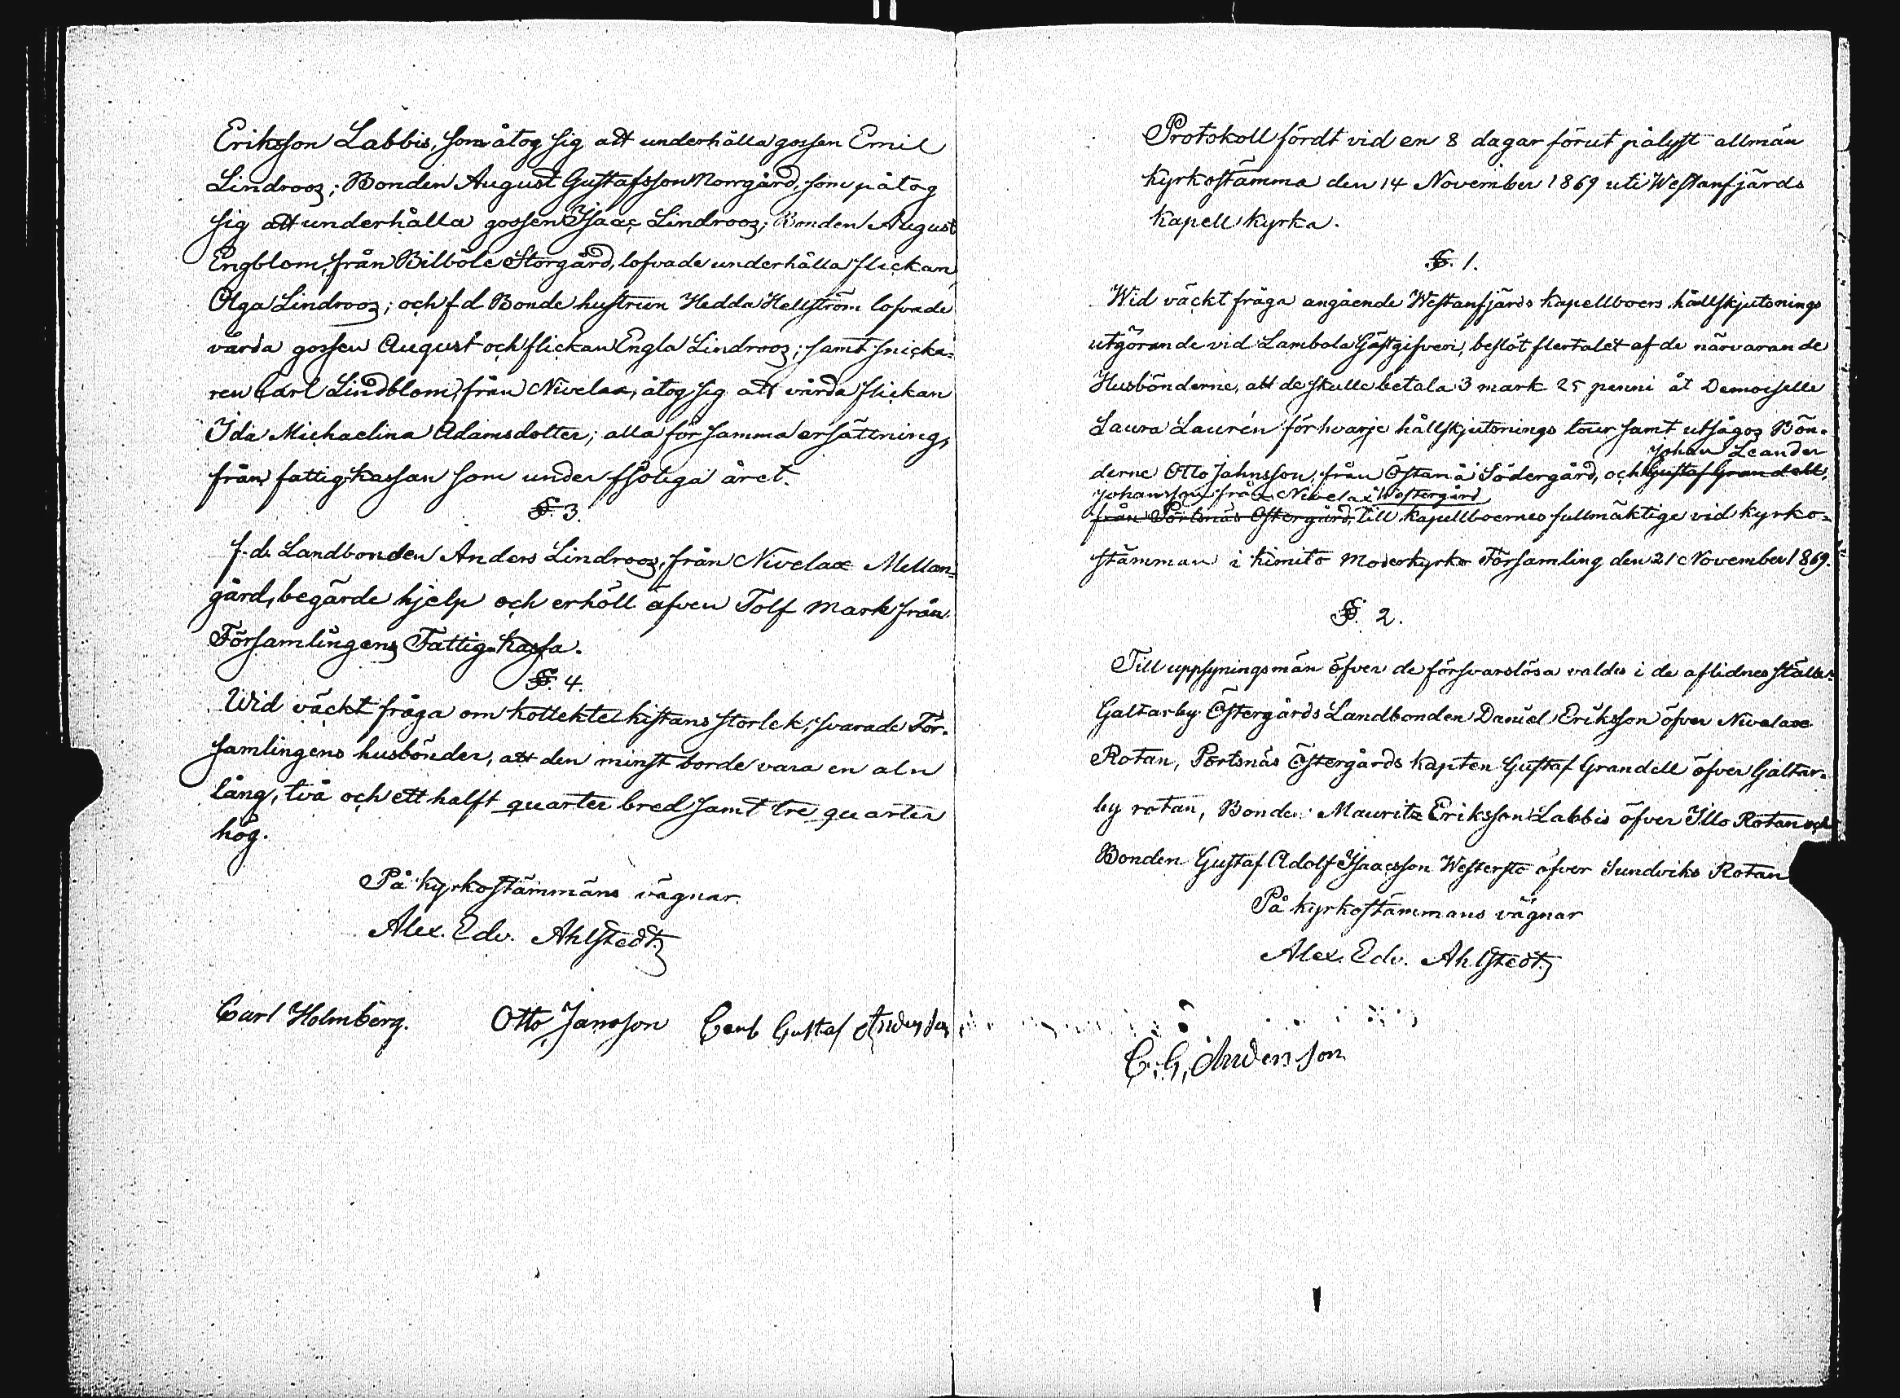 Eriksson Labbis, som åtog sig att underhålla gossen Emil
Lindroos; Bonden August Gustafsson Norrgård, som påtog
sig att underhålla gossen Isaac Lindroos; Bonden August
Engblom, från Bilböle Storgård, lofvade underhålla flickan
Olga Lindroos; och f d Bonde hustrun Hedda Hellström lofvade
vårda gossen August och flickan Engla Lindroos; samt snicka-
ren Carl Lindblom, från Nivelax, åtog sig att vårda flickan
Ida Michaelina Adamsdotter; alla för samma ersättning,
från fattig-kassan som under fl. året.
§. 3.
f. d. Landbonden Anders Lindroos, från Nivelax Mellan-
gård, begärde hjelp och erhöll äfven Tolf mark från
Församlingens Fattig-kassa.
§. 4.
Wid väckt fråga om kollekte kistans storlek, svarade För-
samlingens husbönder, att den minst borde vara en aln
lång, två och ett halft quarter bred samt tre quarter
hög.
På kyrkostämmans vägnar
Alex. Edv. Ahlstedt
Carl Holmberg. Otto Jansson Carl Gustaf Anderson
Protokoll fördt vid en 8 dagar förut pålyst allmän
kyrkostämma den 14 November 1869 uti Westanfjärds
kapell kyrka.
§. 1.
Wid väckt fråga angående Westanfjärds kapellboers hållskjutsnings
utgörande vid Lambola Gästgifveri, beslöt flertalet af de närvarande
Husbönderne, att de skulle betala 3 mark 25 penni åt Demoiselle
Laura Laurén för hvarje hållskjutsnings tour samt utsågos Bön-
Johan Leander
derne Otto Jahnsson, från Östanå Södergård, och Gustaf Grandell,
Johansson från Nivelax Westergård
från Pörtsnäs Östergård, till kapellboernes fullmäktige vid kyrko-
stämman i Kimito Moderkyrko Församling den 21 November 1869.
§. 2.
Till uppsyningsmän öfver de försvarslösa valdes i de aflidnes ställe:
Galtarby Östergårds Landbonden Daniel Eriksson öfver Nivelax
Rotan, Pörtsnäs Östergårds kapten Gustaf Grandell öfver Galtar-
by rotan, Bonden Mauritz Eriksson Labbis öfver Illo Rotan och
Bonden Gustaf Adolf Isaacsson Westersto öfver Sundviks Rotan
På kyrkostämmans vägnar
Alex. Edv. Ahlstedt
C. G. Anderson